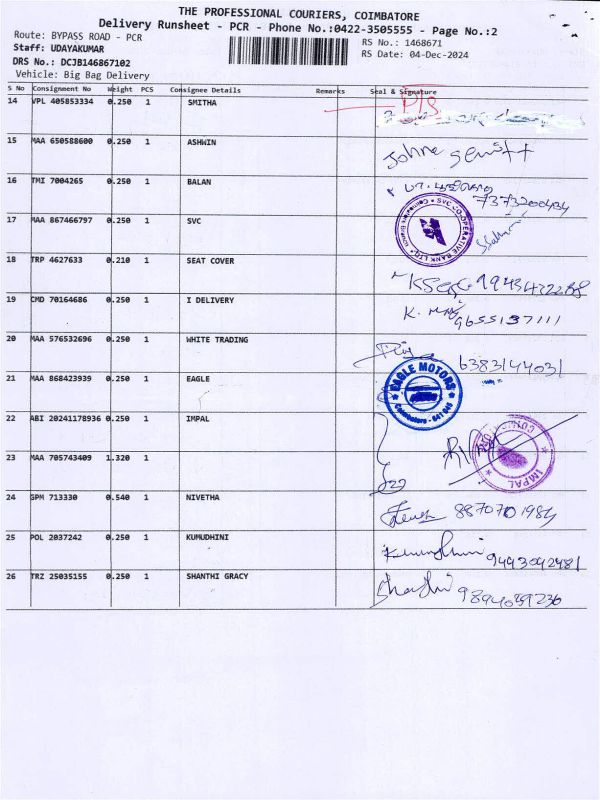 THE PROFESSIONAL COURIERS, COIMBATORE
Delivery Runsheet - PCR - Phone No.:0422-3505555 - Page No.:2
Route: BYPASS ROAD - PCR
RS No.: 1468671
Staff: UDAYAKUMAR
RS Date: 04-Dec-2024
DRS No.: DCJB146867102
Vehicle: Big Bag Delivery
S No Consignment No Weight PCS Consignee Details Remarks Seal & Signature
14 VPL 405853334 0.250 1 SMITHA D/S
15 MAA 650588600 0.250 1 ASHWIN
16 TMI 7004265 0.250 1 BALAN 7373200434
17 MAA 867466797 0.250 1 SVC SVC CO-OPERATIVE BANK LTD.
18 TRP 4627633 0.210 1 SEAT COVER
19 CMD 70164686 0.250 1 I DELIVERY 9655137111
20 MAA 576532696 0.250 1 WHITE TRADING 6383144031
21 MAA 868423939 0.250 1 EAGLE EAGLE MOTORS Coimbatore - 641 045
22 ABI 20241178936 0.250 1 IMPAL IMPAL
23 MAA 705743409 1.320 1
24 GPM 713330 0.540 1 NIVETHA
25 POL 2037242 0.250 1 KUMUDHINI 9443042481
26 TRZ 25035155 0.250 1 SHANTHI GRACY